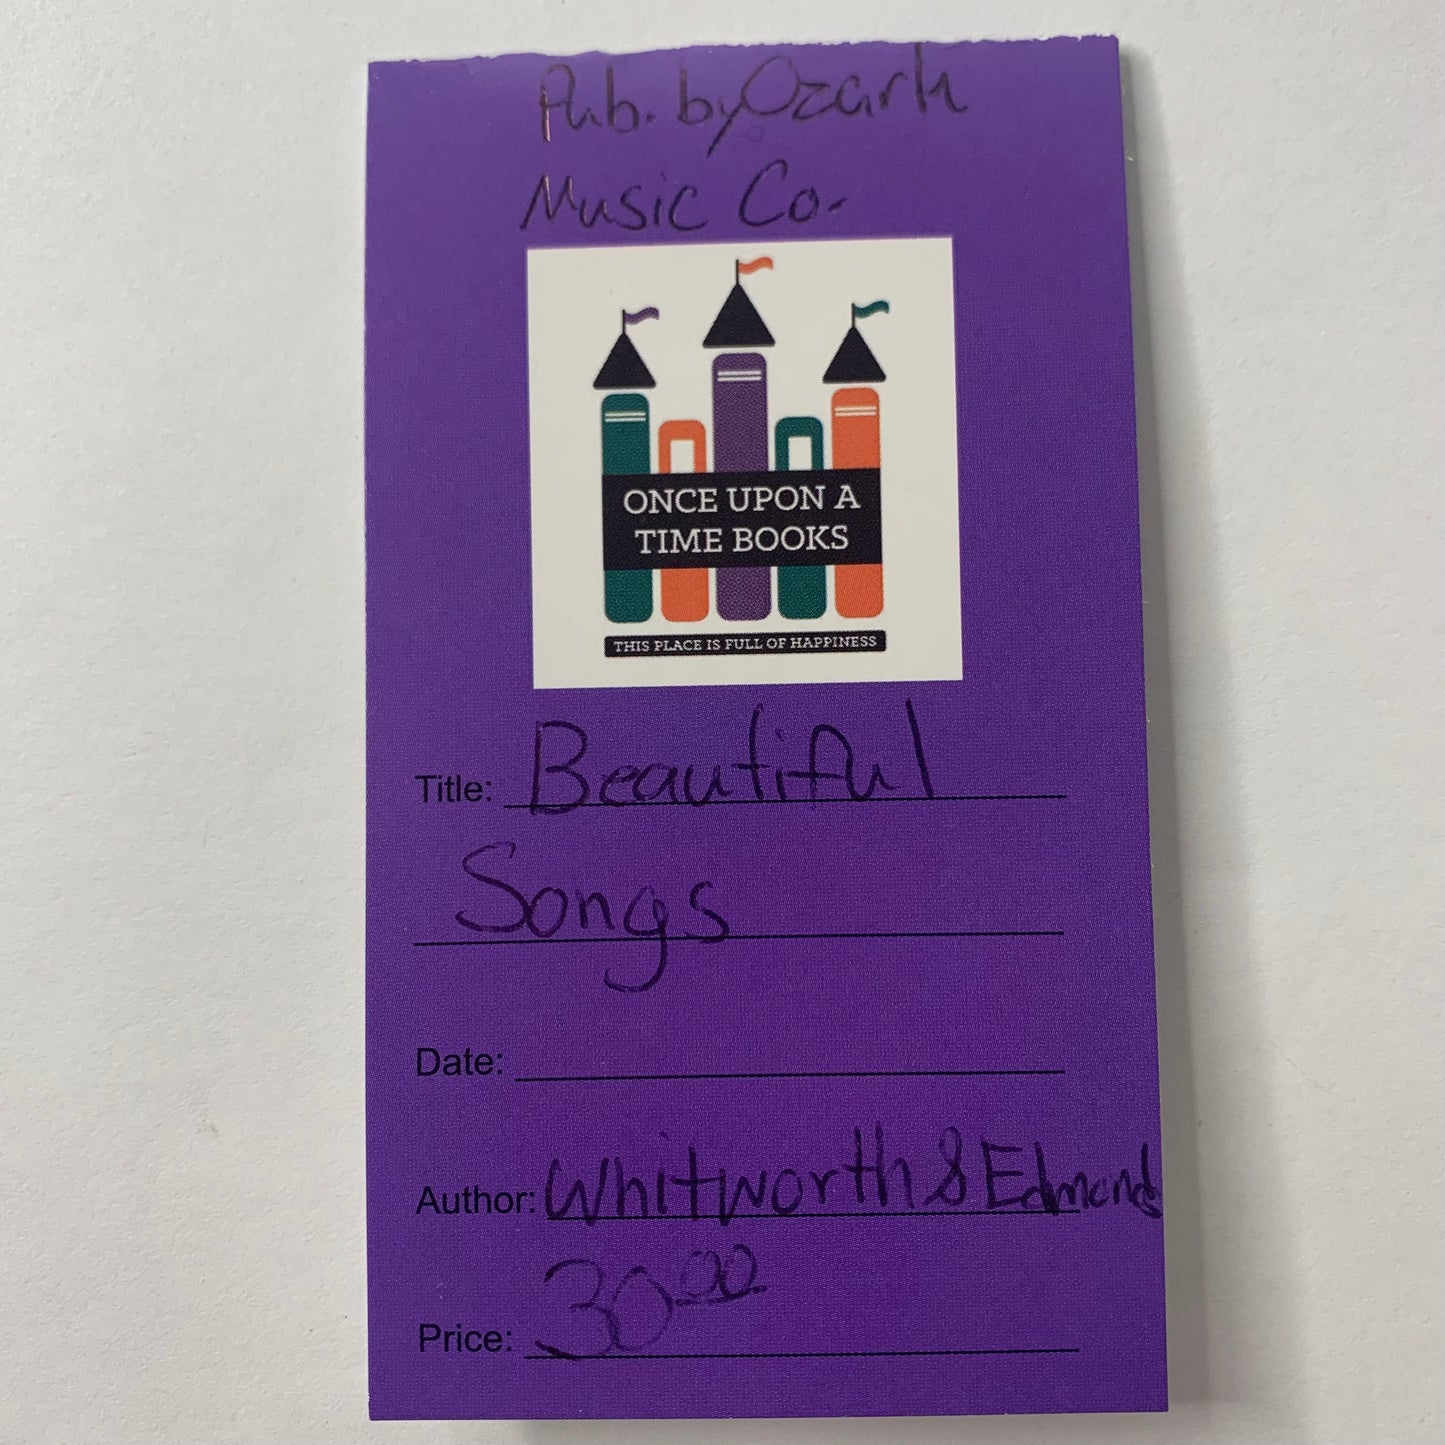 Pub. by Ozark
Music Co.
ONCE UPON A
TIME BOOKS
THIS PLACE IS FULL OF HAPPINESS
Title: Beautiful
Songs
Date:
Author: Whitworth & Edmond
Price: 30.00